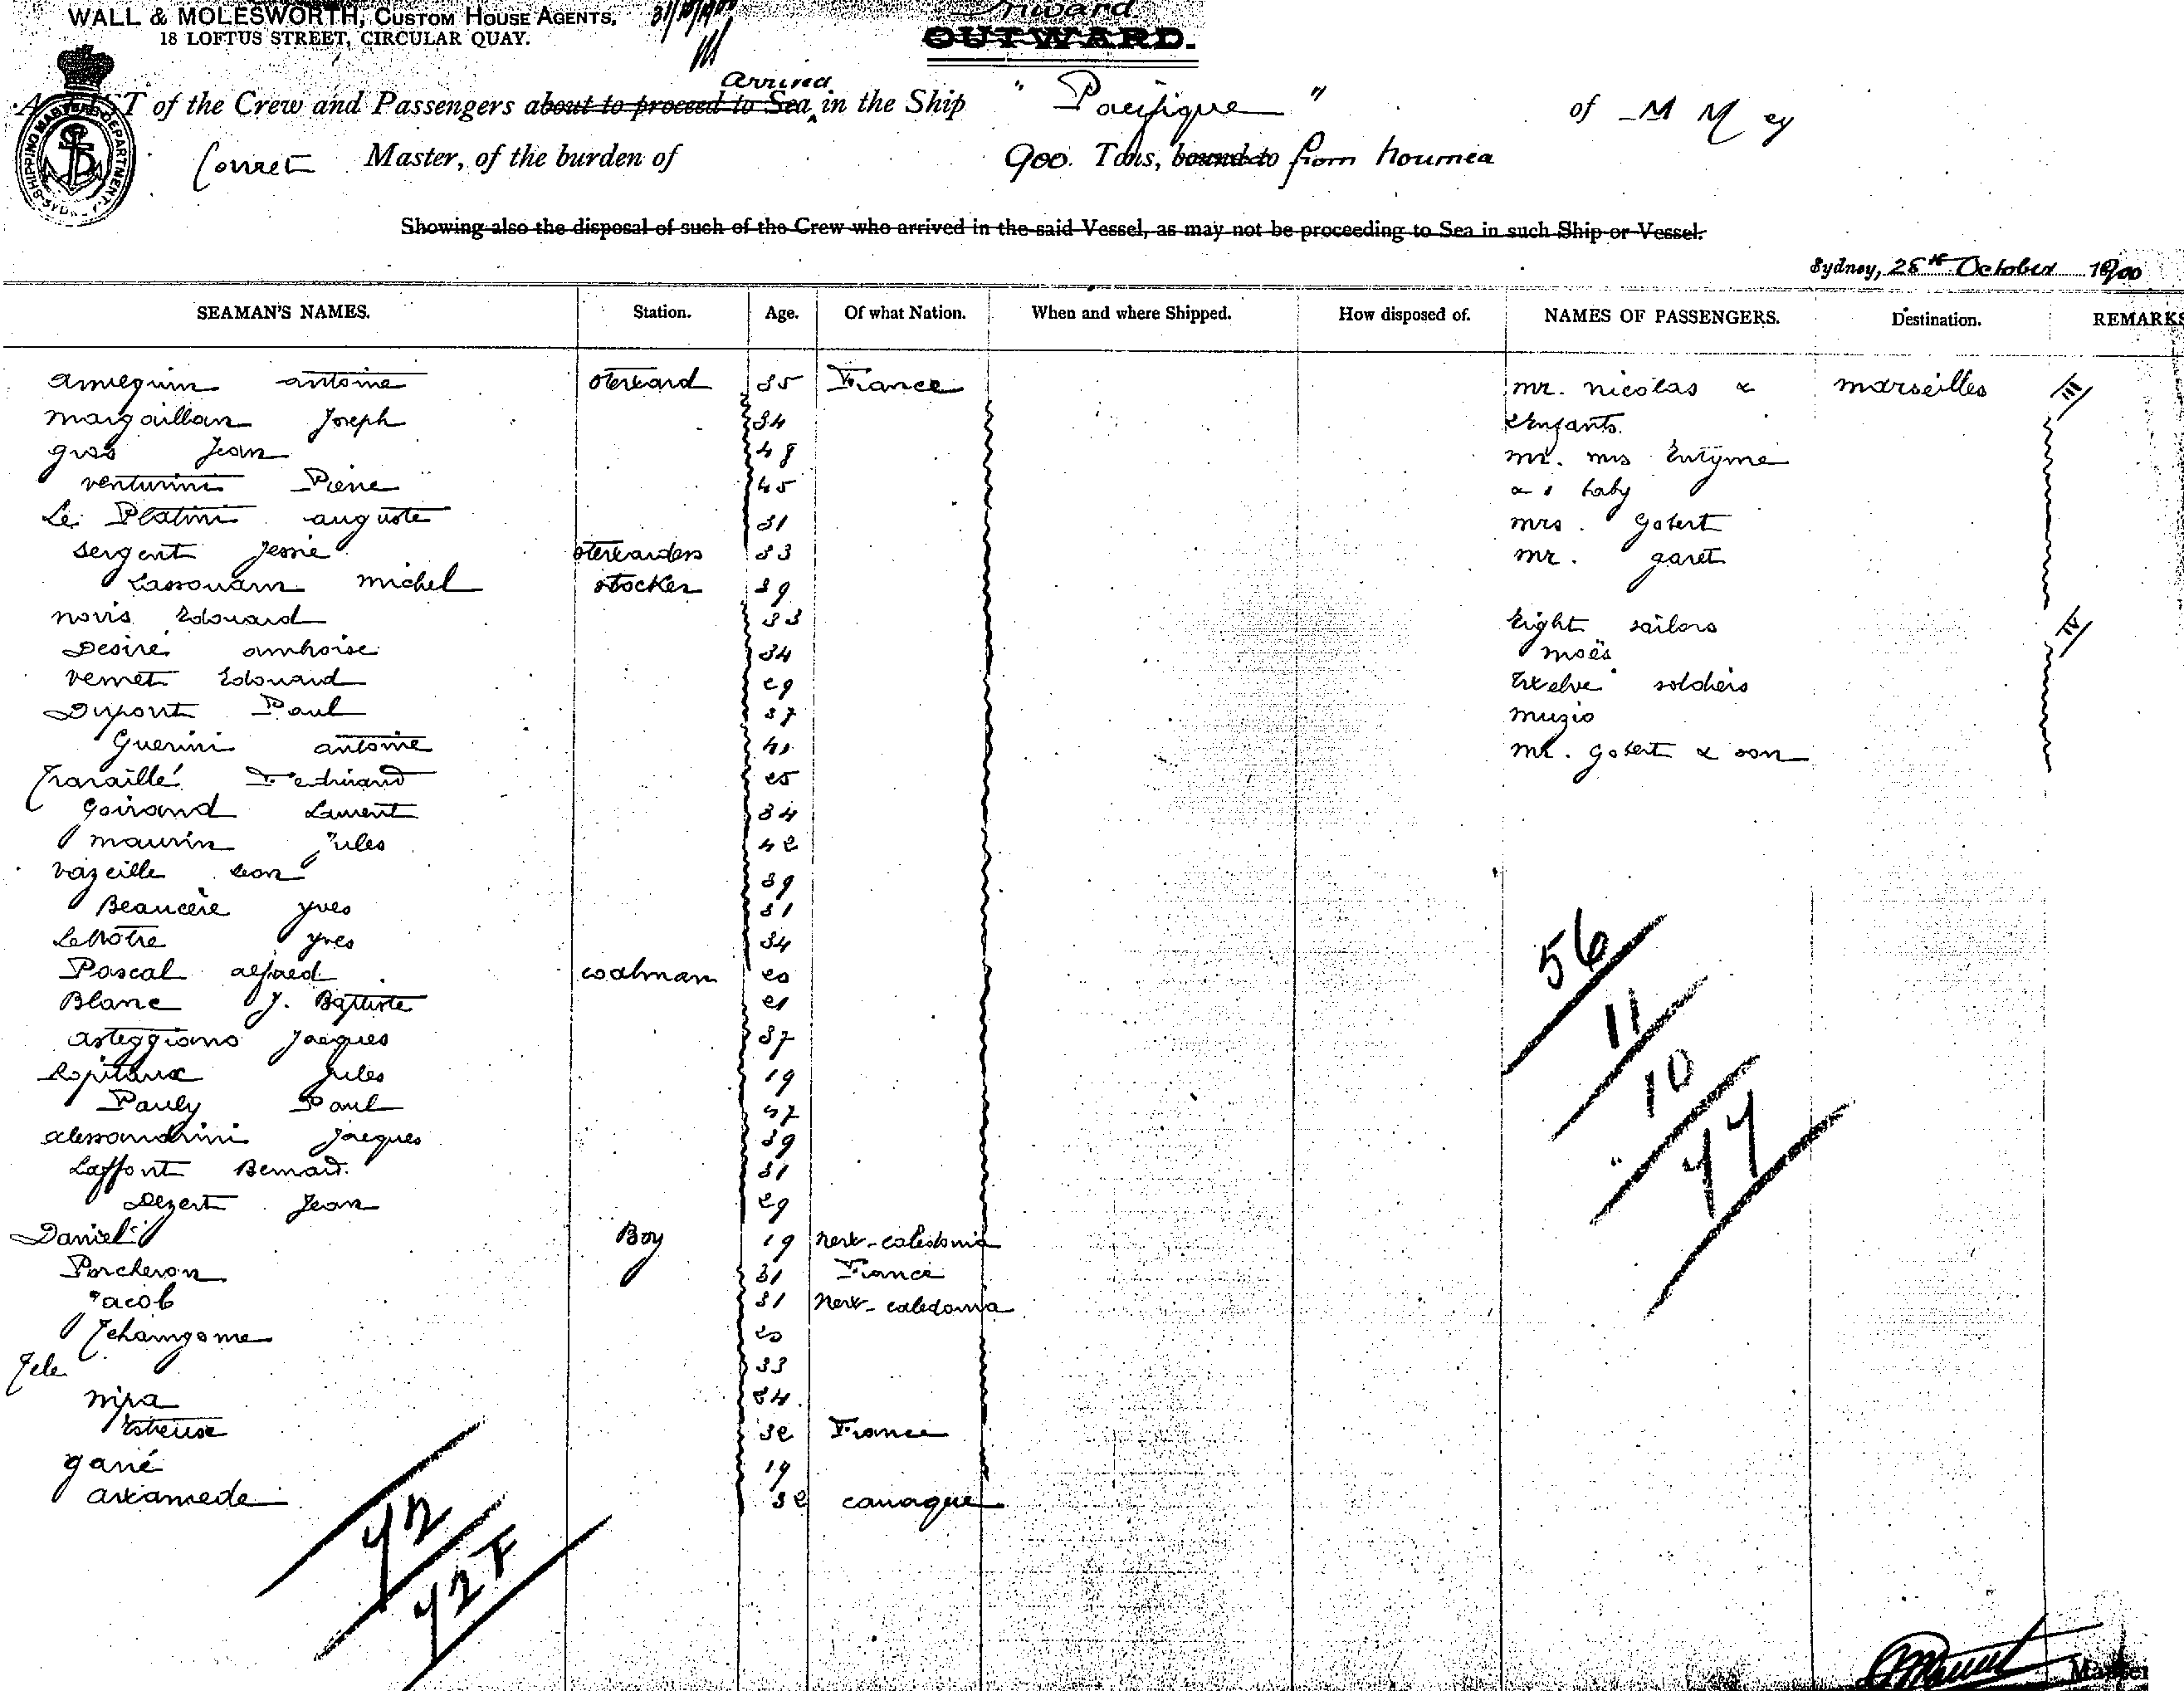 WALL & MOLESWORTH, CUSTOM HOUSE AGENTS,
18 LOFTUS STREET, CIRCULAR QUAY.
Inward
OUTWARD.
SHIPPING MASTER'S DEPARTMENT SYDNEY
A LIST of the Crew and Passengers about to proceed to Sea Arrived in the Ship " Pacifique " of M M cy
Couret Master, of the burden of 900 Tons, bound to from noumea
Showing also the disposal of such of the Crew who arrived in the said Vessel, as may not be proceeding to Sea in such Ship or Vessel.
Sydney, 28th October 1900
SEAMAN'S NAMES. Station. Age. Of what Nation. When and where Shipped. How disposed of. NAMES OF PASSENGERS. Destination. REMARKS
antoine steward 35 France mr. nicolas & marseilles III
margaillan Joseph 34 enfants
gras Jean 48 mr. mrs
venturini Pierre 45 & 1 baby
Le Platini auguste 31 mrs. gobert
sergent stewardess 33 mr. garet
michel stocker 39
noris Edouard 33 Eight sailors IV
Desiré amboise 34 moës
vernet Edouard 29 twelve soldiers
Dupont Paul 37 muzio
Guerini antoine mr. gobert & son
Travaillé Ferdinand 25
Goirand Laurent 34
maurin Jules 42
vazeille Leon 39
Beaucére yves 31
LeNôtre yves 34
Pascal alfred coalman 20
Blanc J. Baptiste 21
asteggiano Jacques 37
Jules 19
Pauly Paul
alessandrini Jacques 39
Laffont Bernard 31
Dezert Jean 29
Daniel Boy 19 new-caledonia
Porcheron 31 France
Jacob 31 new-caledonia
Tchamgome 20
Tele 33
nipa 24
32 France
gané 19
32 canaque
56
11
10
77
42
42 F
Master